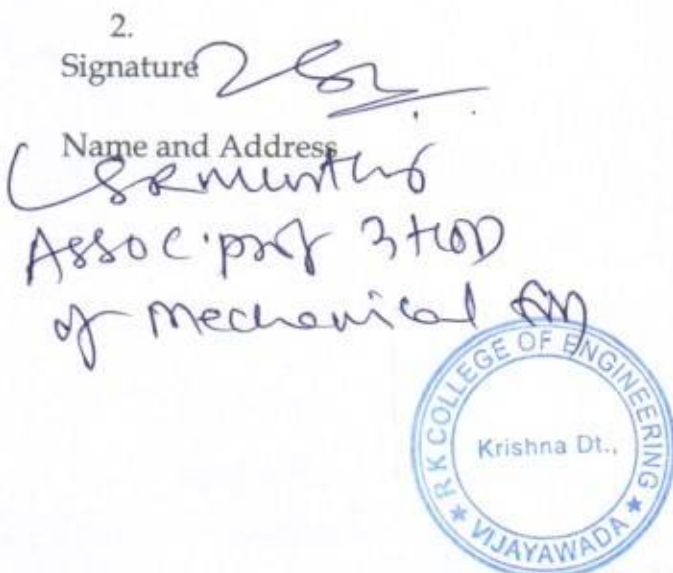 2.
Signature
Name and Address
Assoc. prof & HOD
of Mechanical
R K COLLEGE OF ENGINEERING
Krishna Dt.,
★ VIJAYAWADA ★